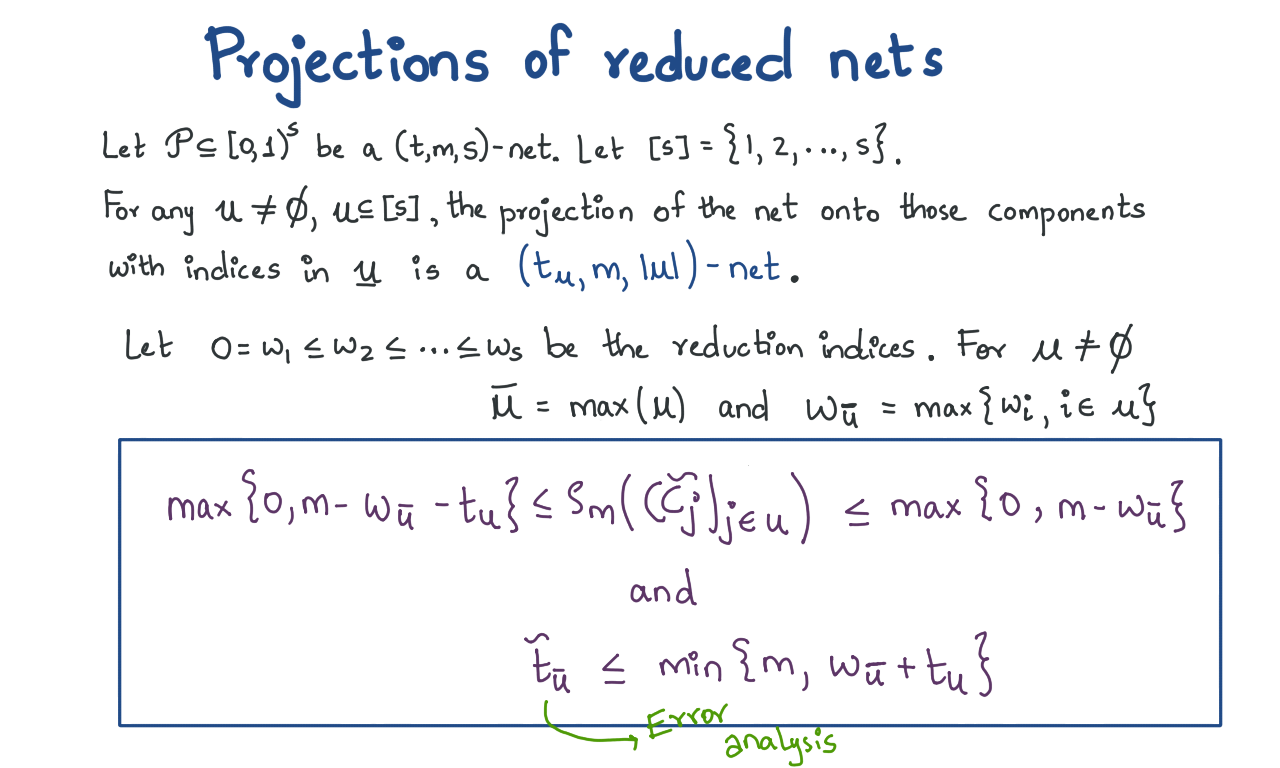 Projections of reduced nets
Let 𝒫 ⊆ [0,1)^s be a (t,m,s)-net. Let [s] = {1, 2, ..., s}.
For any u ≠ ∅, u ⊆ [s], the projection of the net onto those components
with indices in u is a (t_u, m, |u|)-net.
Let 0 = w_1 ≤ w_2 ≤ ... ≤ w_s be the reduction indices. For u ≠ ∅
ū = max(u) and w_ū = max{w_i, i ∈ u}
max{0, m - w_ū - t_u} ≤ ρ_m((C̃_j)_{j∈u}) ≤ max{0, m - w_ū}
and
t̃_ū ≤ min{m, w_ū + t_u}
Error
analysis